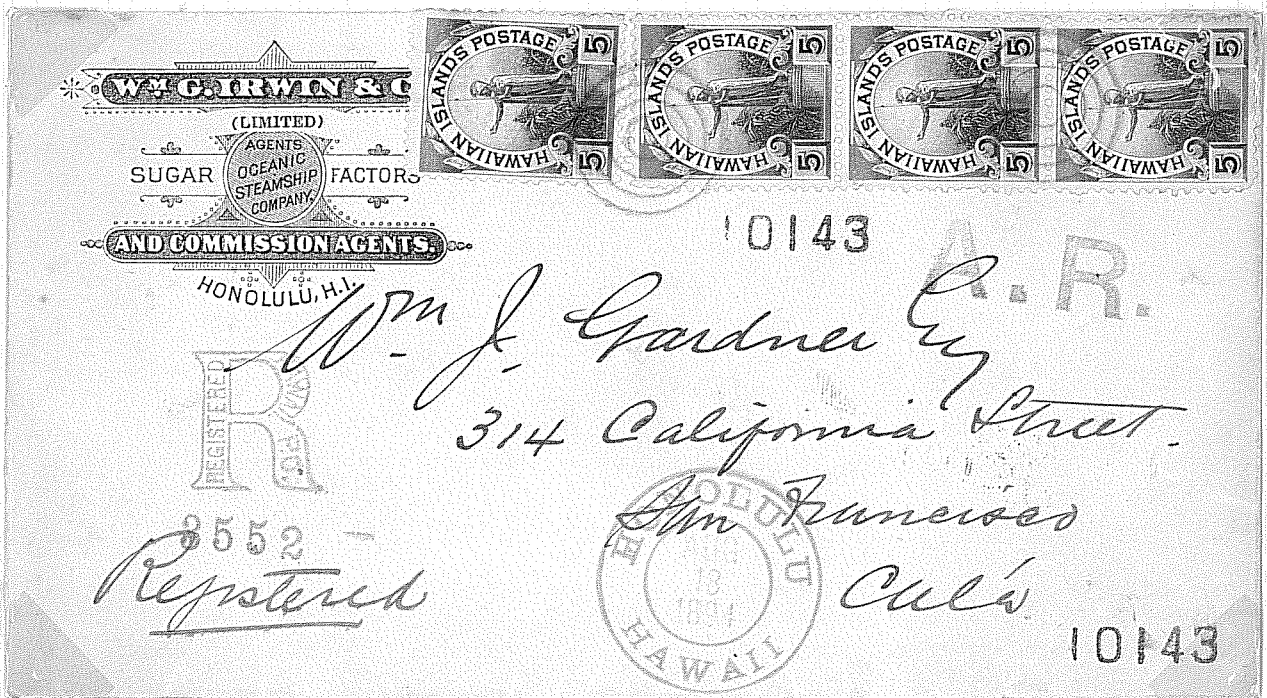 WM G. IRWIN & C
(LIMITED)
SUGAR FACTORS
AGENTS
OCEANIC
STEAMSHIP
COMPANY.
AND COMMISSION AGENTS.
HONOLULU, H.I.
HAWAIIAN ISLANDS POSTAGE 5 5
HAWAIIAN ISLANDS POSTAGE 5 5
HAWAIIAN ISLANDS POSTAGE 5 5
HAWAIIAN ISLANDS POSTAGE 5 5
10143
A.R.
Wm. J. Gardner Esq
314 California Street.
San Francisco
Cala
REGISTERED
R
3552
Registered
HONOLULU
18
1894
HAWAII
10143